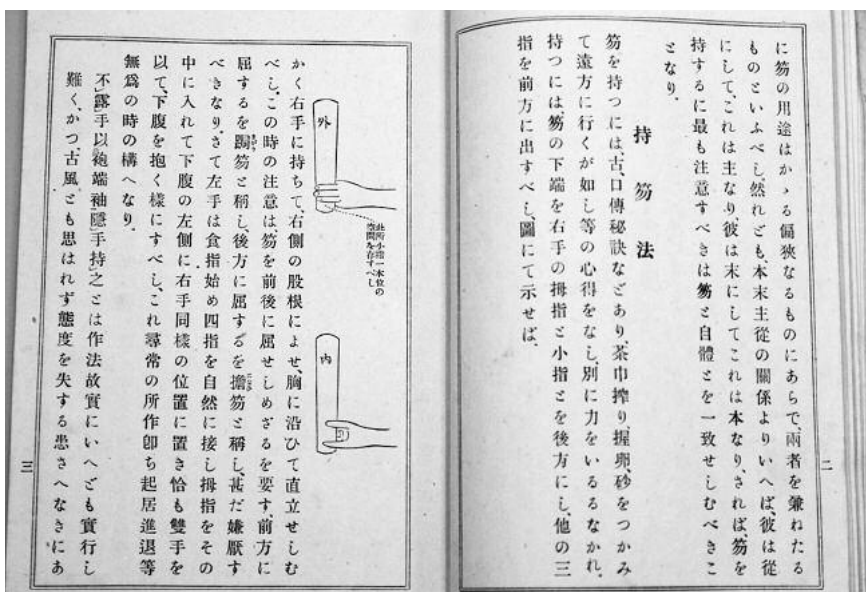 に笏の用途はかゝる偏狹なるものにあらで、兩者を兼ねたる
ものといふべし、然れども、本末主從の關係よりいへば、彼は從
にして、これは主なり、彼は末にしてこれは本なり、されば笏を
持するに最も注意すべきは笏と自體とを一致せしむべきこ
となり。
持笏法
笏を持つには、古、口傳秘訣などあり、茶巾搾り、握卵、砂をつかみ
て遠方に行くが如し等の心得をなし、別に力をいるるなかれ。
持つには、笏の下端を右手の拇指と小指とを後方にし、他の三
指を前方に出すべし、圖にて示せば、
二
外
此所小指一本位の
空間を存すべし
内
かく右手に持ちて、右側の股根によせ、胸に沿ひて直立せしむ
べし、この時の注意は笏を前後に屈せしめざるを要す、前方に
屈するを跼笏と稱し、後方に屈するを擔笏と稱し、甚だ嫌厭す
べきなり、さて左手は食指始め四指を自然に接し拇指をその
中に入れて下腹の左側に右手同樣の位置に置き恰も雙手を
以て、下腹を抱く樣にすべし、これ尋常の所作卽ち起居進退等
無爲の時の構へなり。
不露手以袍端袖隱手持之とは作法故實にいへども實行し
難く、かつ、古風とも思はれず態度を失する患さへなきにあ
三